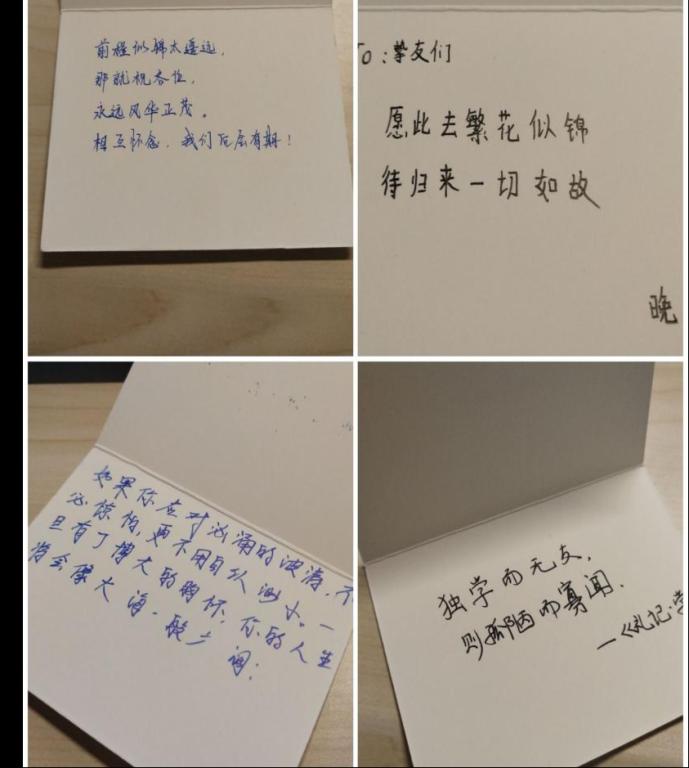 前程似锦太遥远,
那就祝各位,
永远风华正茂。
相互怀念,我们后会有期!
To:挚友们
愿此去繁花似锦
待归来一切如故
晚
如果你应对汹涌的波涛,不
必惊怕,更不用自认渺小。一
旦有了博大的胸怀,你的人生
将会像大海一般
阔;
独学而无友,
则孤陋而寡闻。
—《礼记·学